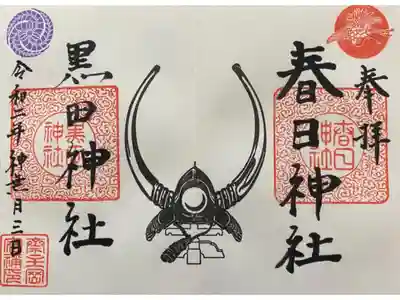 奉拝
春日神社
春日神社
黒田神社
黒田神社
令和二年神月三日